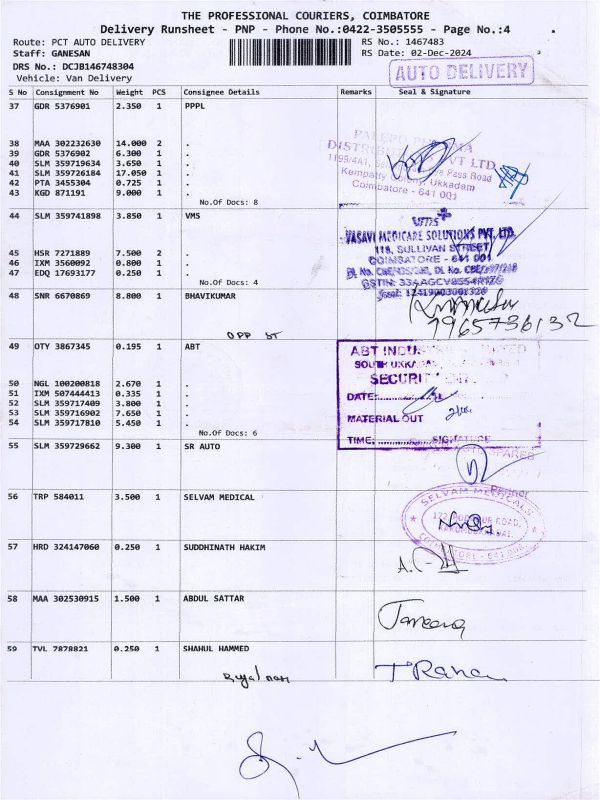 THE PROFESSIONAL COURIERS, COIMBATORE
Delivery Runsheet - PNP - Phone No.:0422-3505555 - Page No.:4
Route: PCT AUTO DELIVERY RS No.: 1467483
Staff: GANESAN RS Date: 02-Dec-2024
DRS No.: DCJB146748304
Vehicle: Van Delivery
AUTO DELIVERY
S No Consignment No Weight PCS Consignee Details Remarks Seal & Signature
37 GDR 5376901 2.350 1 PPPL
38 MAA 302232630 14.000 2 .
39 GDR 5376902 6.300 1 .
40 SLM 359719634 3.650 1 .
41 SLM 359726184 17.050 1 .
42 PTA 3455304 0.725 1 .
43 KGD 871191 9.000 1 .
No.Of Docs: 8
PVT LTD
Pass Road
Ukkadam
Coimbatore - 641 001
44 SLM 359741898 3.850 1 VMS
45 HSR 7271889 7.500 2 .
46 IXM 3560092 0.800 1 .
47 EDQ 17693177 0.250 1 .
No.Of Docs: 4
VASAVI MEDICARE SOLUTIONS PVT. LTD.
118, SULLIVAN STREET
COIMBATORE - 641 001
48 SNR 6670869 8.800 1 BHAVIKUMAR
OPP ST
7965736132
49 OTY 3867345 0.195 1 ABT
50 NGL 100200818 2.670 1 .
51 IXM 507444413 0.335 1 .
52 SLM 359717409 3.800 1 .
53 SLM 359716902 7.650 1 .
54 SLM 359717810 5.450 1 .
No.Of Docs: 6
ABT INDUS
SECURITY
DATE:
MATERIAL OUT
TIME: SIGNATURE
55 SLM 359729662 9.300 1 SR AUTO
SPARES
Partner
56 TRP 584011 3.500 1 SELVAM MEDICAL
SELVAM MEDICALS
COIMBATORE - 641 008
57 HRD 324147060 0.250 1 SUDDHINATH HAKIM
58 MAA 302530915 1.500 1 ABDUL SATTAR
59 TVL 7878821 0.250 1 SHAHUL HAMMED